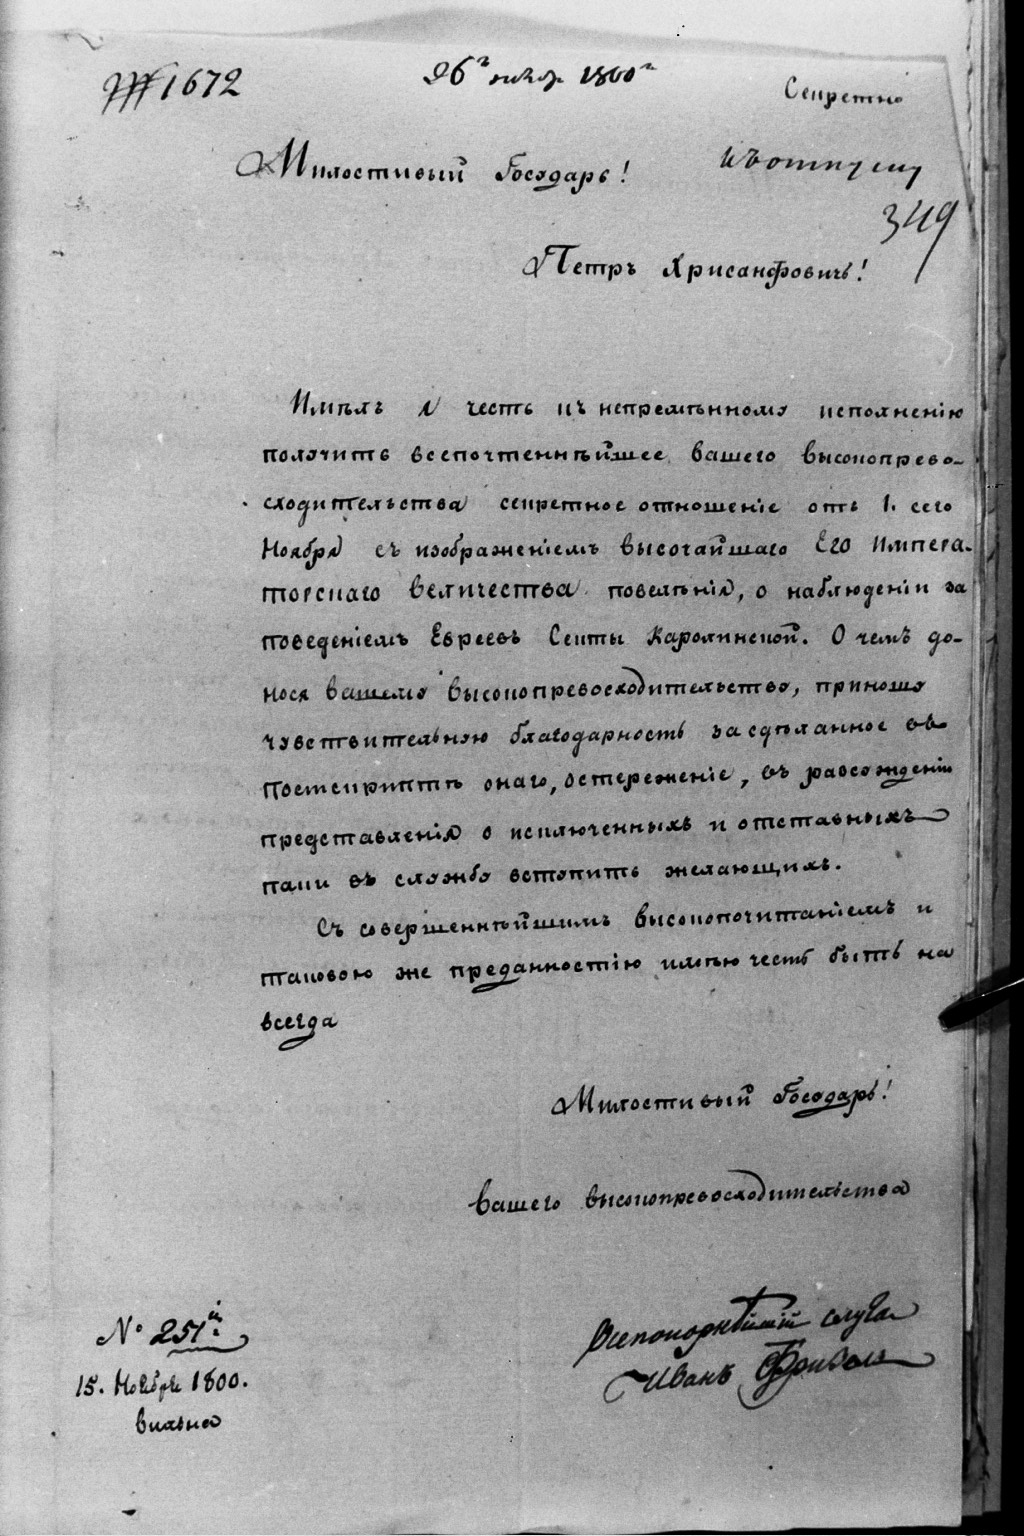 1672
26го нояб. 1800го
Секретно
Милостивый Государь!
къ отпуску
349
Петръ Хрисанфовичь!
Имѣлъ я честь къ непремѣнному исполненію
получить всепочтеннѣйшее вашего высокопрево-
сходительства секретное отношеніе отъ 1. сего
Ноября съ изображеніемъ высочайшаго Его Импера-
торскаго величества повелѣнія, о наблюденіи за
поведеніемъ Евреевъ Секты Каролинской. О чемъ до-
нося вашему высокопревосходительству, приношу
чувствительную благодарность за сдѣланное въ
постскриптѣ онаго, остереженіе, въ разсужденіи
представленія о исключенныхъ и отставныхъ
паки въ службу вступить желающихъ.
Съ совершеннѣйшимъ высокопочитаніемъ и
таковою же преданностію имѣю честь быть на
всегда
Милостивый Государь!
вашего высокопревосходительства
Всепокорнѣйшій слуга
Иванъ Фризель
№ 251й.
15. Ноября 1800.
вильна